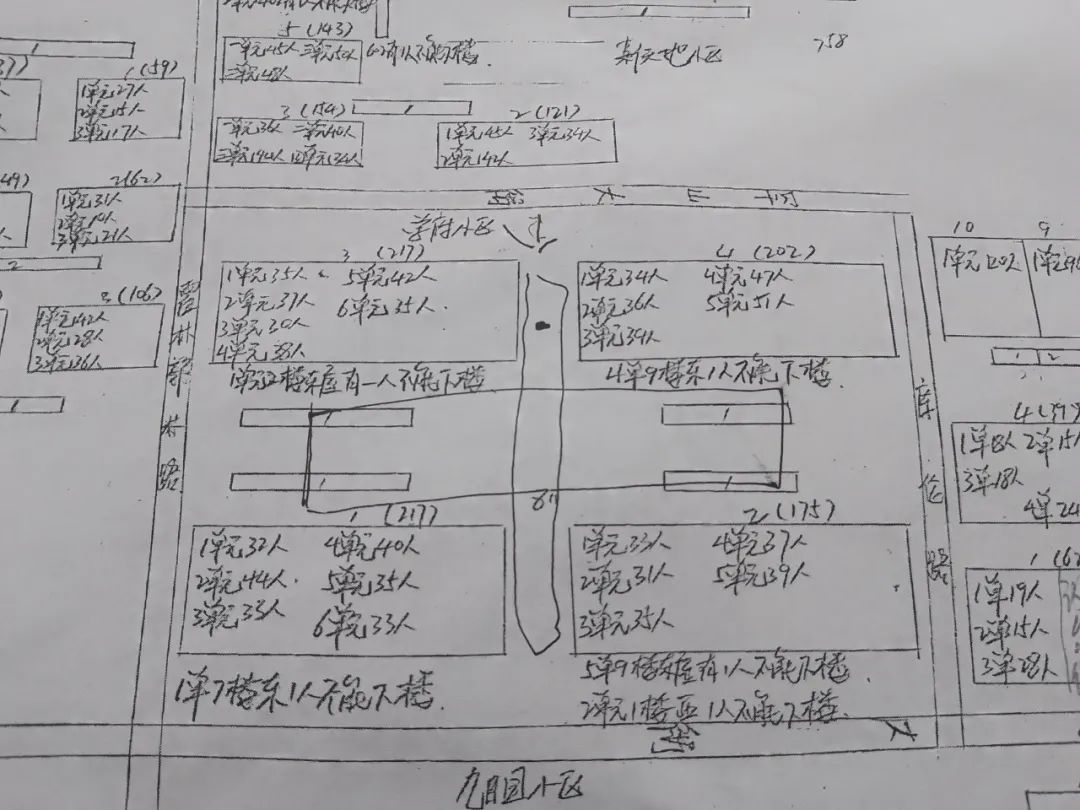 5 (143)
一单元45人 三单元50人
二单元48人
602有1人不能下楼.
新天地小区
758
1 (59)
1单元27人
2单元15人
3单元17人
3 (154)
一单元36人 二单元40人
三单元44人 四单元34人
2 (121)
1单元45人 3单元34人
2单元42人
2(62)
1单元31人
2单元10人
3单元21人
学府小区
3 (217)
1单元35人 5单元42人
2单元37人 6单元35人.
3单元30人
4单元38人
1单元2楼东屋有一人不能下楼
4 (202)
1单元34人 4单元47人
2单元36人 5单元51人
3单元34人
4单9楼东1人不能下楼.
10 9
1单元120人
3(106)
1单元42人
2单元28人
3单元36人
霍林郭林路
库伦路
1 (217)
1单元32人 4单元40人
2单元44人. 5单元35人
3单元33人 6单元33人
1单7楼东1人不能下楼.
2 (175)
1单元33人 4单元37人
2单元31人 5单元39人
3单元35人
5单9楼东屋有1人不能下楼.
2单元1楼西1人不能下楼.
1单18人 2单15人
3单18人
4单24
1单19人
2单15人
3单28人
大